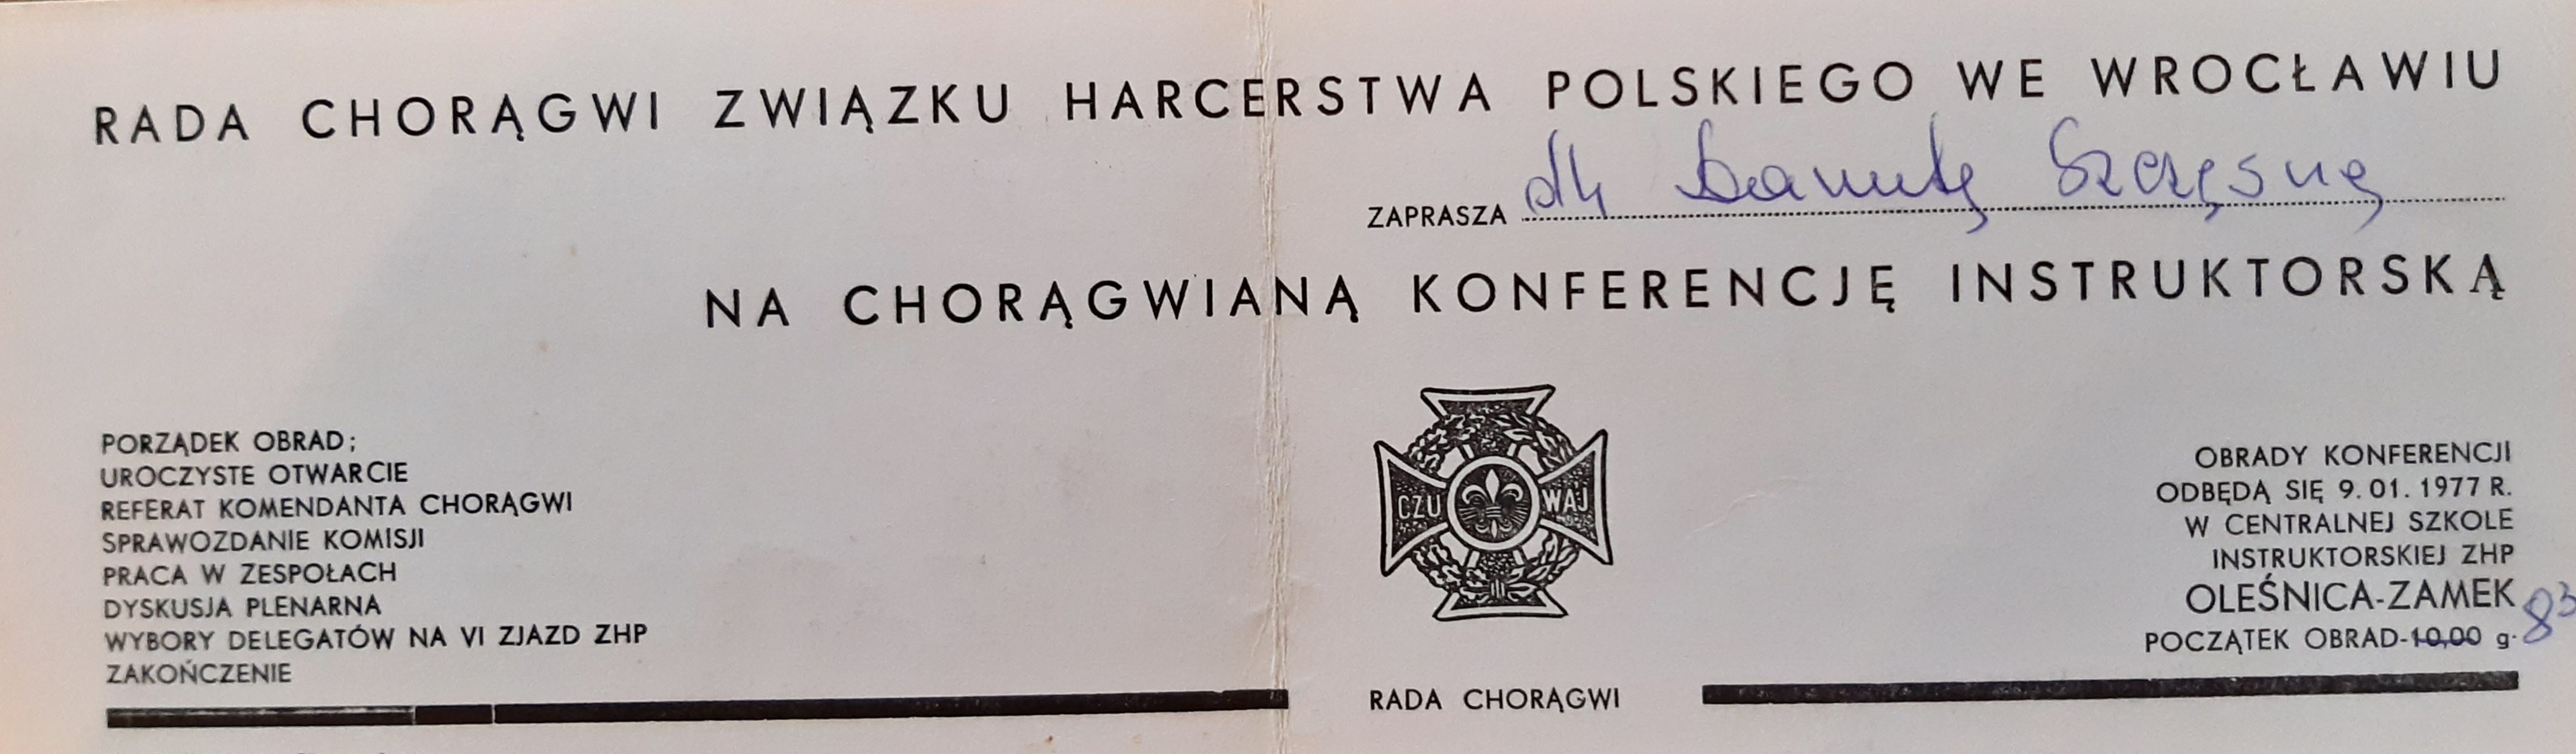 RADA CHORĄGWI ZWIĄZKU HARCERSTWA POLSKIEGO WE WROCŁAWIU
ZAPRASZA dh Danutę Szczęsną
NA CHORĄGWIANĄ KONFERENCJĘ INSTRUKTORSKĄ
PORZĄDEK OBRAD;
UROCZYSTE OTWARCIE
REFERAT KOMENDANTA CHORĄGWI
SPRAWOZDANIE KOMISJI
PRACA W ZESPOŁACH
DYSKUSJA PLENARNA
WYBORY DELEGATÓW NA VI ZJAZD ZHP
ZAKOŃCZENIE
CZU WAJ
RADA CHORĄGWI
OBRADY KONFERENCJI
ODBĘDĄ SIĘ 9.01.1977 R.
W CENTRALNEJ SZKOLE
INSTRUKTORSKIEJ ZHP
OLEŚNICA-ZAMEK
POCZĄTEK OBRAD-10,00 g. 83